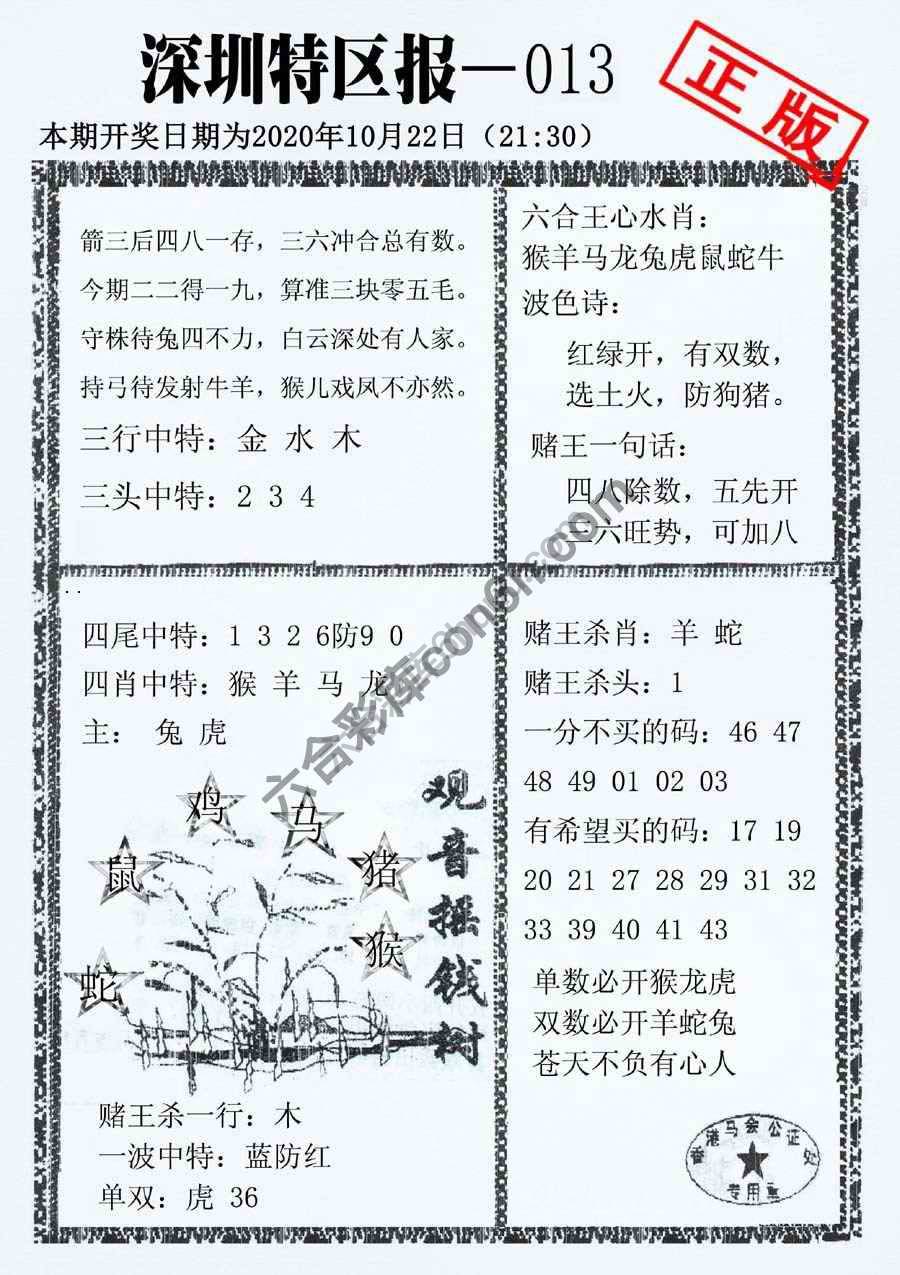 深圳特区报—013
正版
本期开奖日期为2020年10月22日（21:30）
箭三后四八一存，三六冲合总有数。
今期二二得一九，算准三块零五毛。
守株待兔四不力，白云深处有人家。
持弓待发射牛羊，猴儿戏凤不亦然。
三行中特：金 水 木
三头中特：2 3 4
六合王心水肖：
猴羊马龙兔虎鼠蛇牛
波色诗：
红绿开，有双数，
选土火，防狗猪。
赌王一句话：
四八除数，五先开
三六旺势，可加八
四尾中特：1 3 2 6防9 0
四肖中特：猴 羊 马 龙
主： 兔 虎
鸡
马
鼠
猪
猴
蛇
观音摇钱树
赌王杀一行：木
一波中特：蓝防红
单双：虎 36
赌王杀肖：羊 蛇
赌王杀头：1
一分不买的码：46 47
48 49 01 02 03
有希望买的码：17 19
20 21 27 28 29 31 32
33 39 40 41 43
单数必开猴龙虎
双数必开羊蛇兔
苍天不负有心人
香港马会公证处
专用章
六合彩库